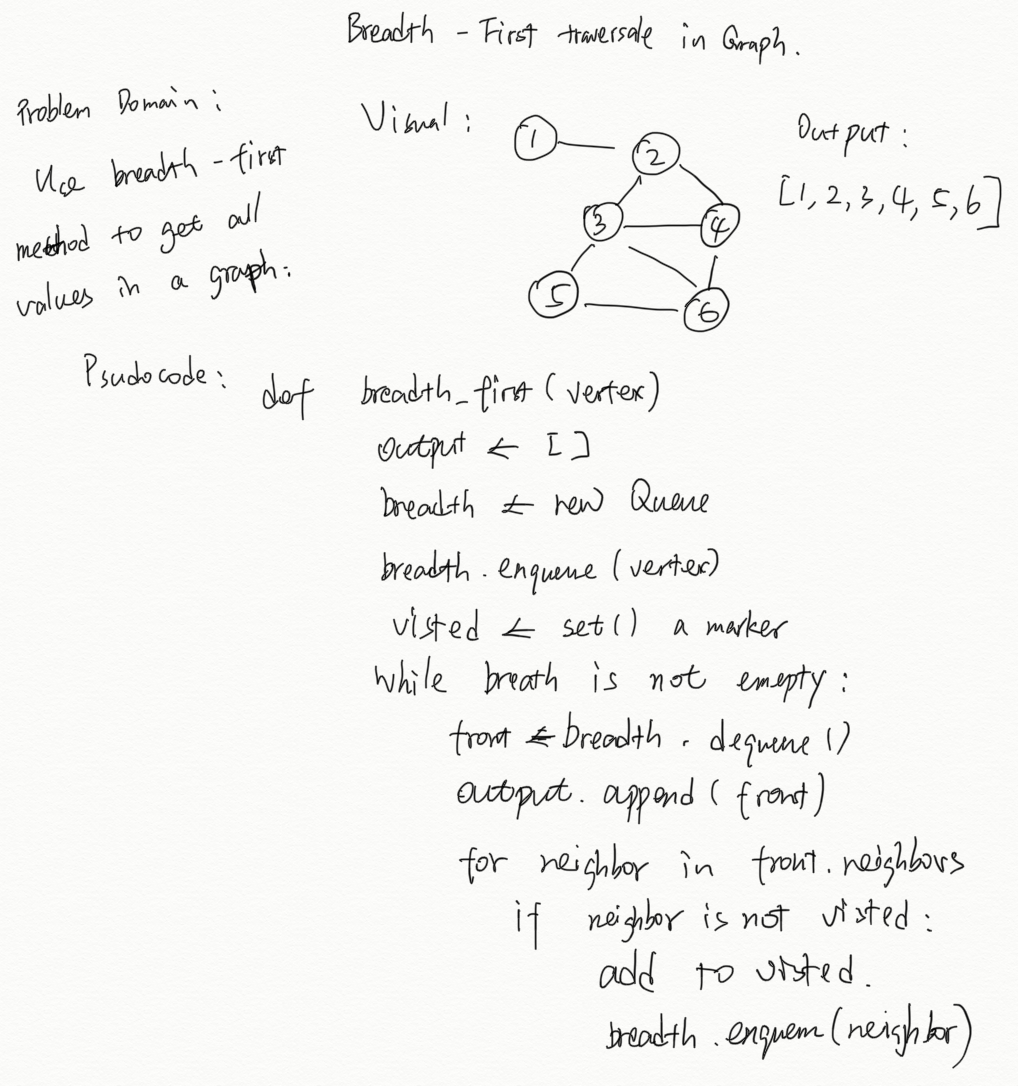 Breadth - First traversale in Graph.
Problem Domain:
Use breadth - first
method to get all
values in a graph.
Visual:
1
2
3
4
5
6
Output:
[1, 2, 3, 4, 5, 6]
Psudocode:
def breadth_first (vertex)
output ← []
breadth ← new Queue
breadth. enqueue (vertex)
visted ← set() a marker
while breath is not emepty:
front ← breadth. dequeue ()
output. append (front)
for neighbor in front. neighbors
if neighbor is not visted:
add to visted.
breadth. enquem (neighbor)